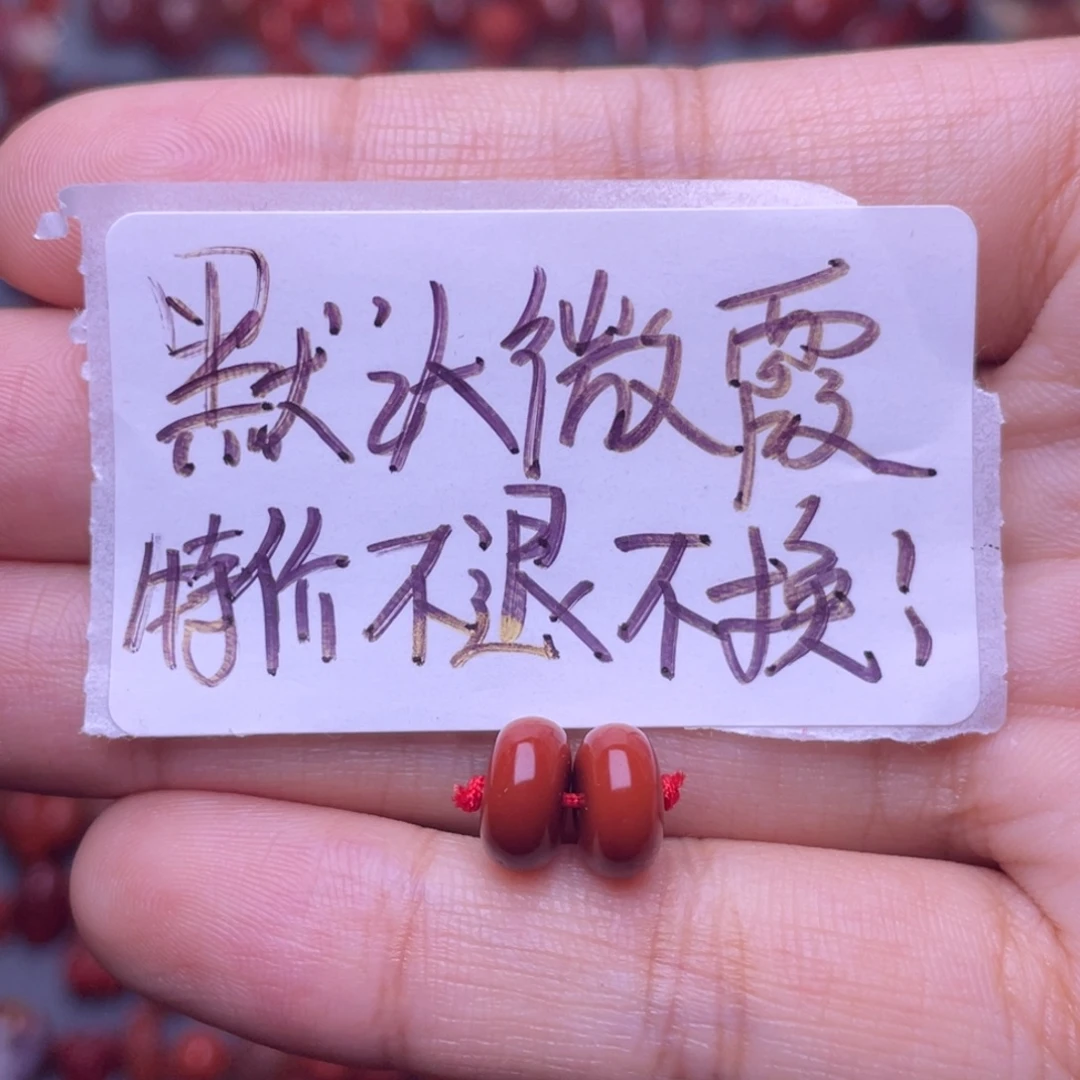 默以微霞
特价不退不换！